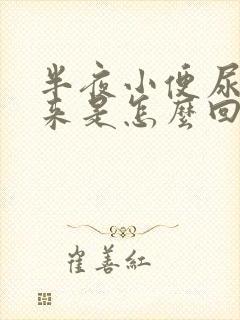 半夜小便尿
来是怎麼回
崔善红